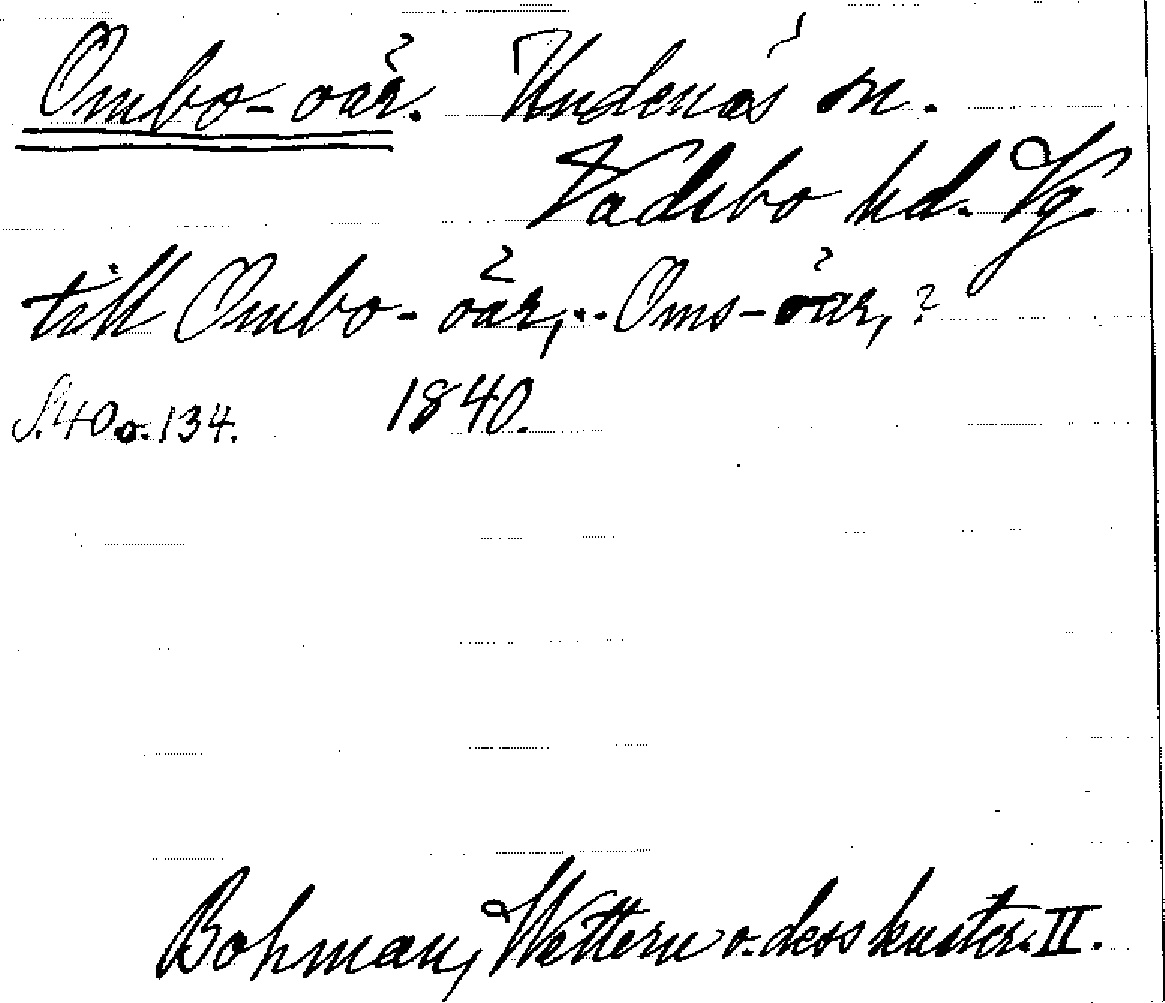 Ombo-oär. Undenäs sn.
Vadsbo hd. Vg
till Ombo-öar, .. Oms-öar, ?
S. 40 o. 134. 1840.
Bohman, Wettern o. dess kuster. II.